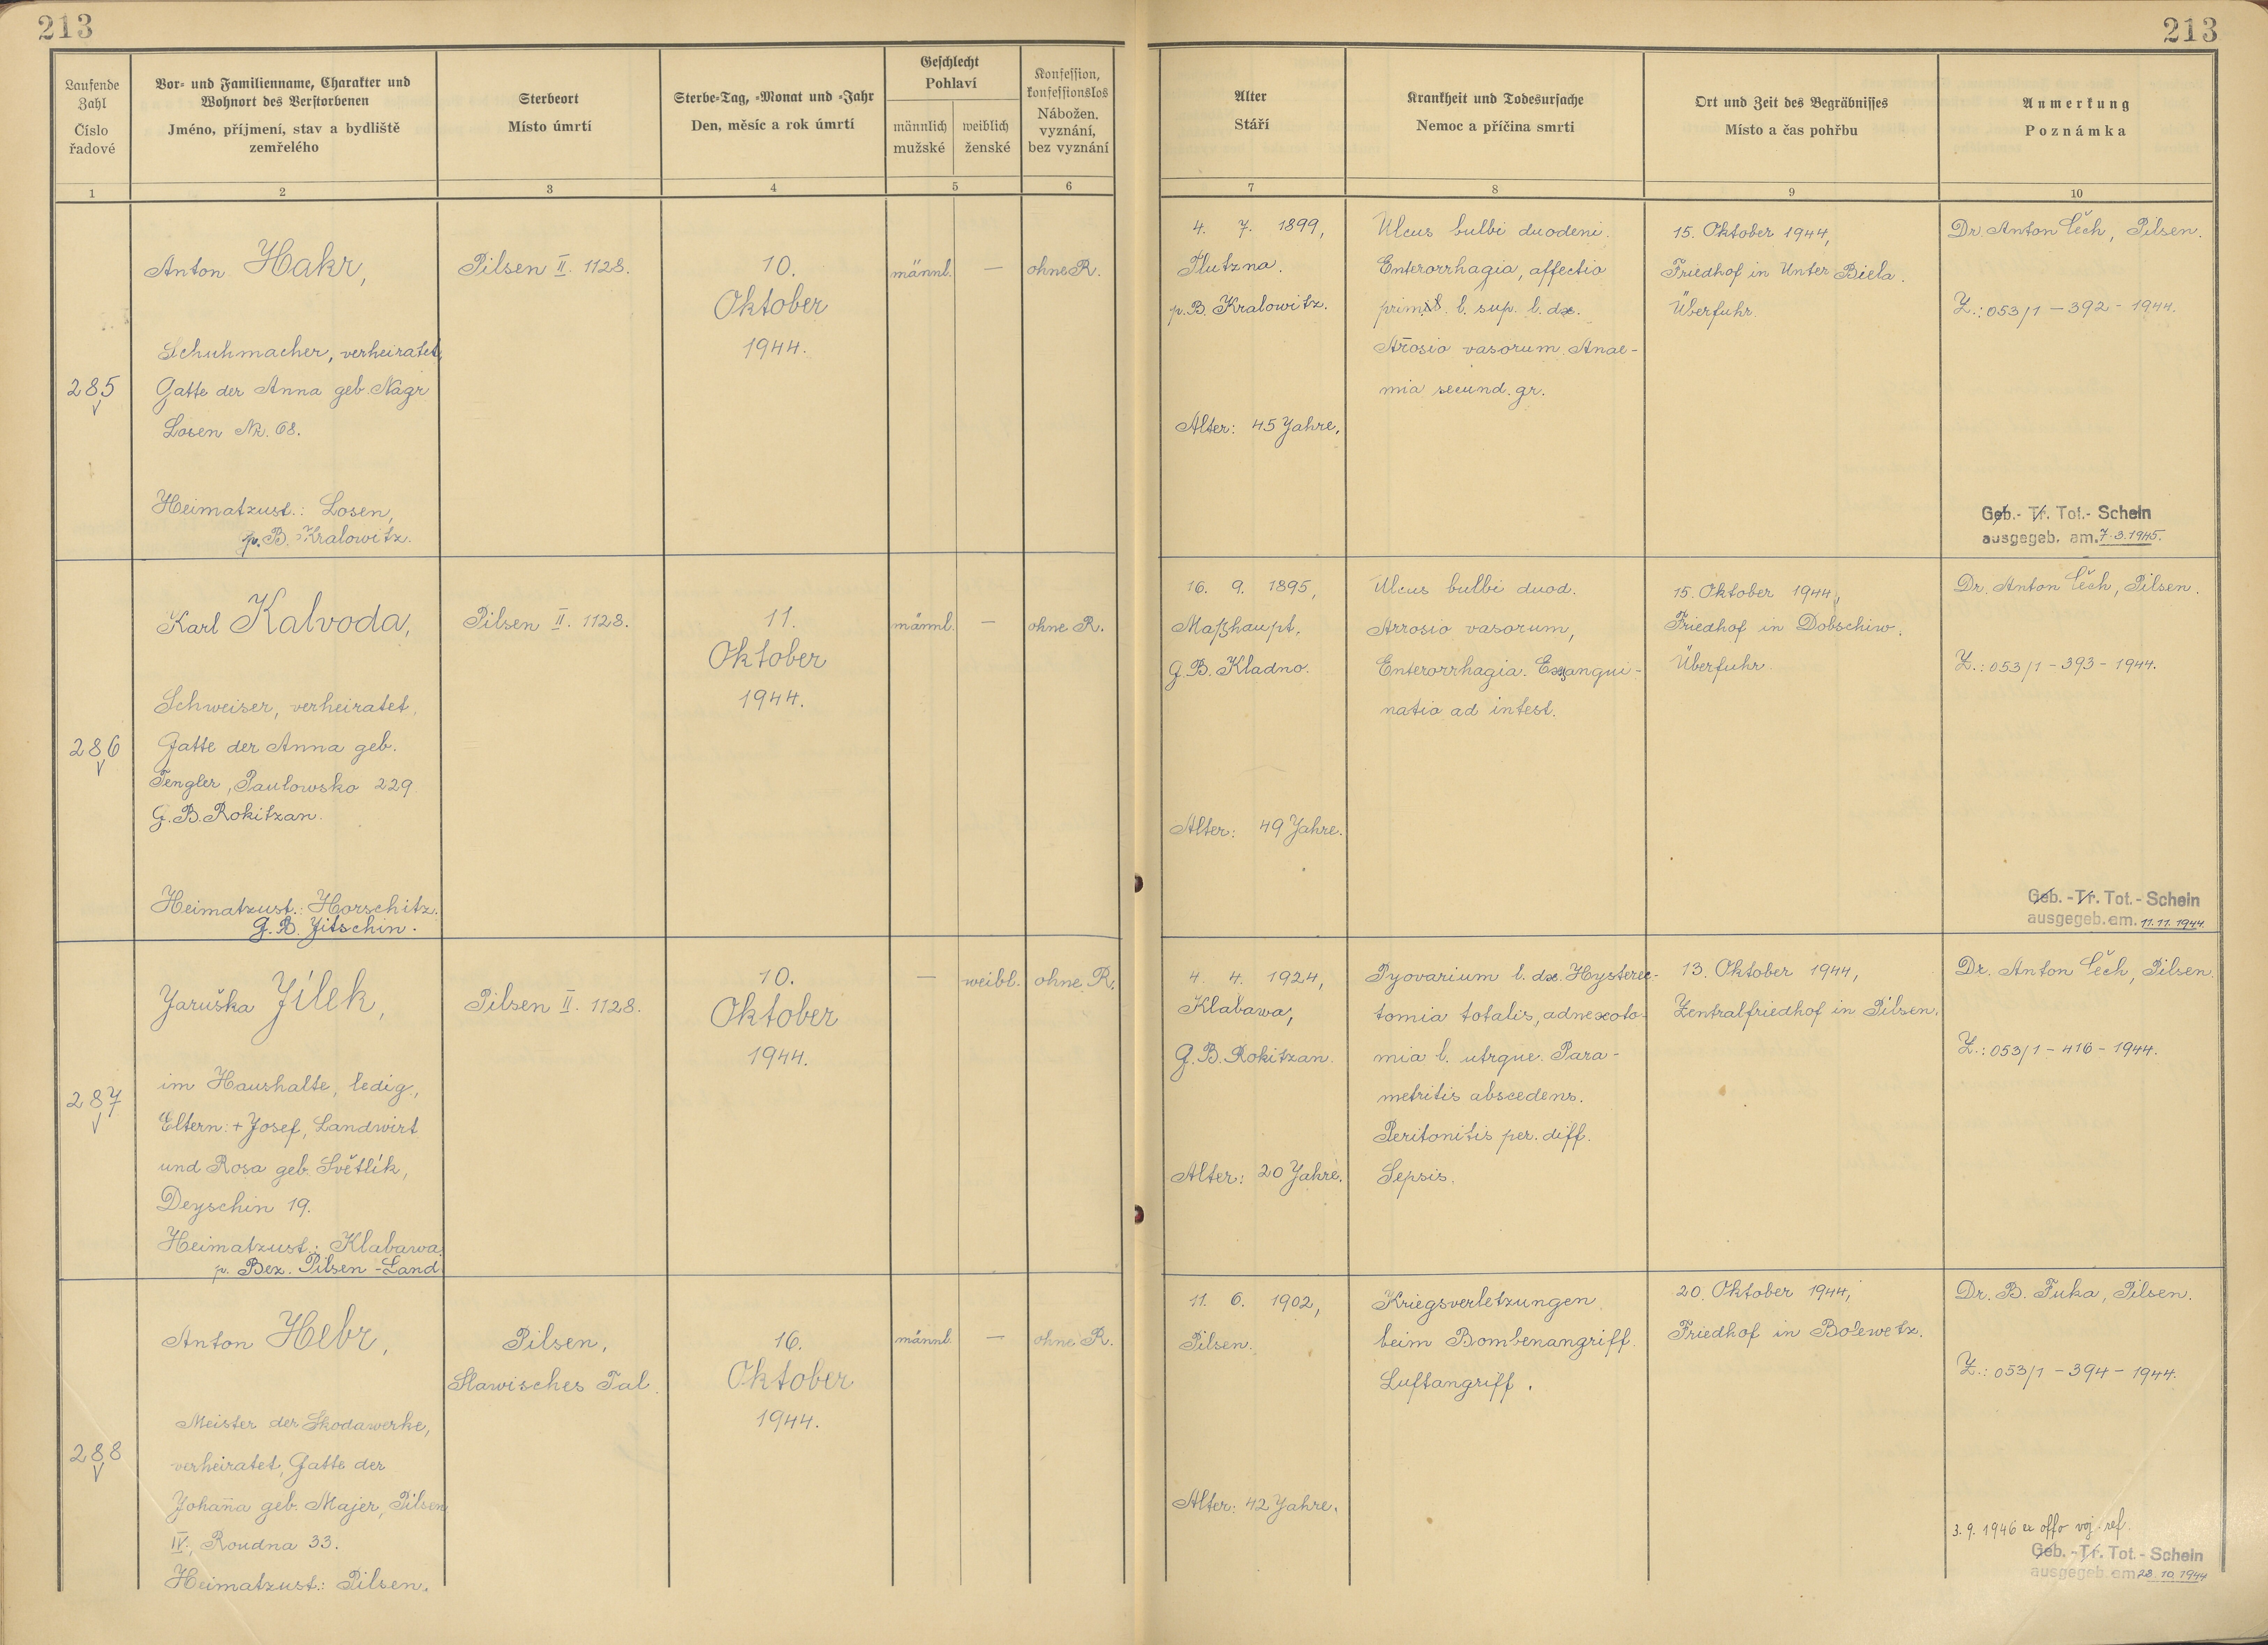 213
213
Laufende Zahl
Číslo řadové
Vor- und Familienname, Charakter und Wohnort des Verstorbenen
Jméno, příjmení, stav a bydliště zemřelého
Sterbeort
Místo úmrtí
Sterbe-Tag, -Monat und -Jahr
Den, měsíc a rok úmrtí
Geschlecht
Pohlaví
männlich
mužské
weiblich
ženské
Konfession, konfessionslos
Nábožen. vyznání, bez vyznání
Alter
Stáří
Krankheit und Todesursache
Nemoc a příčina smrti
Ort und Zeit des Begräbnisses
Místo a čas pohřbu
Anmerkung
Poznámka
1
2
3
4
5
6
7
8
9
10
285
Anton Hakr,
Schuhmacher, verheiratet,
Gatte der Anna geb. Nágr
Losen Nr. 68.
Heimatzust.: Losen,
p. B. Kralowitz.
Pilsen II. 1128.
10.
Oktober
1944.
männl.
—
ohne R.
4. 7. 1899,
Hlutzna.
p. B. Kralowitz.
Alter: 45 Jahre.
Ulcus bulbi duodeni.
Enterorrhagia, affectio
l. sup. l. dx.
Ařosio vasorum. Anae-
mia secund. gr.
15. Oktober 1944,
Friedhof in Unter Biela.
Überfuhr.
Dr. Anton Čech, Pilsen.
Z.: 053/1 - 392 - 1944.
Geb.- Tr. Tot.- Schein
ausgegeb. am. 7.3.1945.
286
Karl Kalvoda,
Schweiser, verheiratet,
Gatte der Anna geb.
Tengler, Paulowsko 229
G. B. Rokitzan.
Heimatzust.: Horschitz.
G. B. Jitschin.
Pilsen II. 1128.
11.
Oktober
1944.
männl.
—
ohne R.
16. 9. 1895,
Maßhaupt,
G. B. Kladno.
Alter: 49 Jahre.
Ulcus bulbi duod.
Arrosio vasorum,
Enterorrhagia. Exsangui-
natio ad intest.
15. Oktober 1944,
Friedhof in Dobschiw.
Überfuhr.
Dr. Anton Čech, Pilsen.
Z.: 053/1 - 393 - 1944.
Geb. - Tr. Tot. - Schein
ausgegeb. am. 11.11.1944
287
Jaruška Jílek,
im Haushalte, ledig,
Eltern: + Josef, Landwirt
und Rosa geb. Světlík,
Deyschin 19.
Heimatzust.: Klabawa.
p. Bez. Pilsen - Land
Pilsen II. 1128.
10.
Oktober
1944.
—
weibl.
ohne R.
4. 4. 1924,
Klabawa,
G. B. Rokitzan.
Alter: 20 Jahre.
Pyovarium l. dx. Hysterec-
tomia totalis, adnexoto-
mia l. utrque. Para-
metritis abscedens.
Peritonitis per. diff.
Sepsis.
13. Oktober 1944,
Zentralfriedhof in Pilsen.
Dr. Anton Čech, Pilsen.
Z.: 053/1 - 416 - 1944.
288
Anton Hebr,
Meister der Skodawerke,
verheiratet, Gatte der
Johaña geb. Majer, Pilsen
IV., Roudna 33.
Heimatzust.: Pilsen.
Pilsen,
Slawisches Tal.
16.
Oktober
1944.
männl.
—
ohne R.
11. 6. 1902,
Pilsen.
Alter: 42 Jahre.
Kriegsverletzungen
beim Bombenangriff
Luftangriff.
20. Oktober 1944,
Friedhof in Bolewetz.
Dr. B. Fuka, Pilsen.
Z.: 053/1 - 394 - 1944.
3. 9. 1946 ex offo voj. ref.
Geb. - Tr. Tot. - Schein
ausgegeb. am 28.10.1944